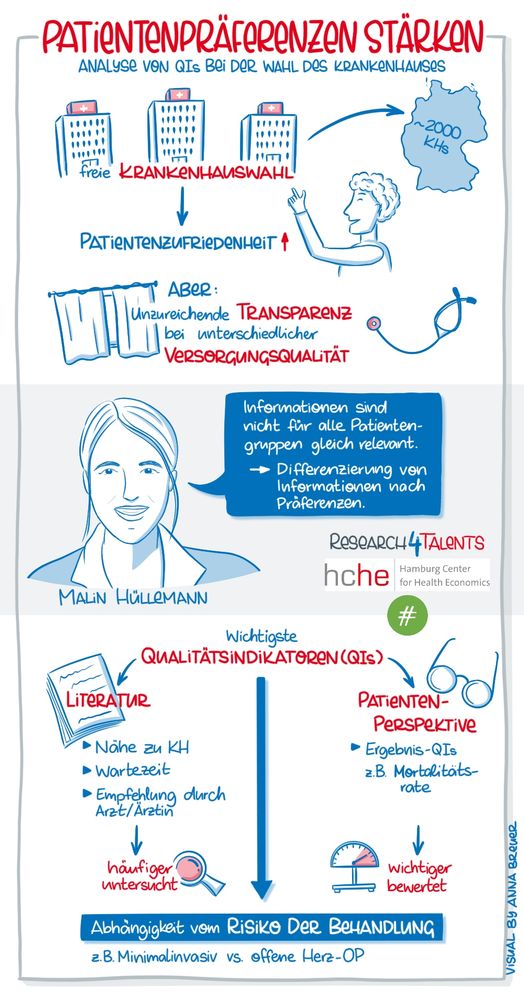 PATIENTENPRÄFERENZEN STÄRKEN
ANALYSE VON QIs BEI DER WAHL DES KRANKENHAUSES
~2000
KHs
freie KRANKENHAUSWAHL
PATIENTENZUFRIEDENHEIT
ABER:
Unzureichende TRANSPARENZ
bei unterschiedlicher
VERSORGUNGSQUALITÄT
Informationen sind
nicht für alle Patienten-
gruppen gleich relevant.
→ Differenzierung von
Informationen nach
Präferenzen.
RESEARCH4TALENTS
hche
Hamburg Center
for Health Economics
MALIN HÜLLEMANN
#
Wichtigste
QUALITÄTSINDIKATOREN (QIs)
LITERATUR
▸ Nähe zu KH
▸ Wartezeit
▸ Empfehlung durch
Arzt/Ärztin
häufiger
untersucht
PATIENTEN-
PERSPEKTIVE
▸ Ergebnis-QIs
z.B. Mortalitäts-
rate
wichtiger
bewertet
Abhängigkeit vom RISIKO DER BEHANDLUNG
z.B. Minimalinvasiv vs. offene Herz-OP
VISUAL BY ANNA BREUER